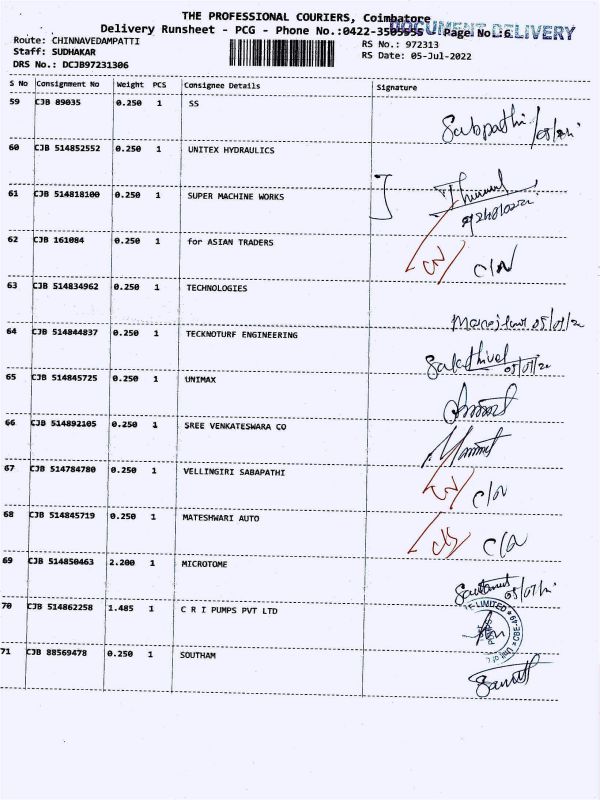 THE PROFESSIONAL COURIERS, Coimbatore
DOCUMENT DELIVERY
Delivery Runsheet - PCG - Phone No.:0422-3505955 Page No.:6
Route: CHINNAVEDAMPATTI
RS No.: 972313
Staff: SUDHAKAR
RS Date: 05-Jul-2022
DRS No.: DCJB97231306
S No Consignment No Weight PCS Consignee Details Signature
59 CJB 89035 0.250 1 SS
Sabpathi
60 CJB 514852552 0.250 1 UNITEX HYDRAULICS
61 CJB 514818100 0.250 1 SUPER MACHINE WORKS
62 CJB 161084 0.250 1 for ASIAN TRADERS
C/N
63 CJB 514834962 0.250 1 TECHNOLOGIES
64 CJB 514844837 0.250 1 TECKNOTURF ENGINEERING
Sakthivel
65 CJB 514845725 0.250 1 UNIMAX
66 CJB 514892105 0.250 1 SREE VENKATESWARA CO
67 CJB 514784780 0.250 1 VELLINGIRI SABAPATHI
C/N
68 CJB 514845719 0.250 1 MATESHWARI AUTO
C/N
69 CJB 514850463 2.200 1 MICROTOME
70 CJB 514862258 1.485 1 C R I PUMPS PVT LTD
LIMITED
71 CJB 88569478 0.250 1 SOUTHAM